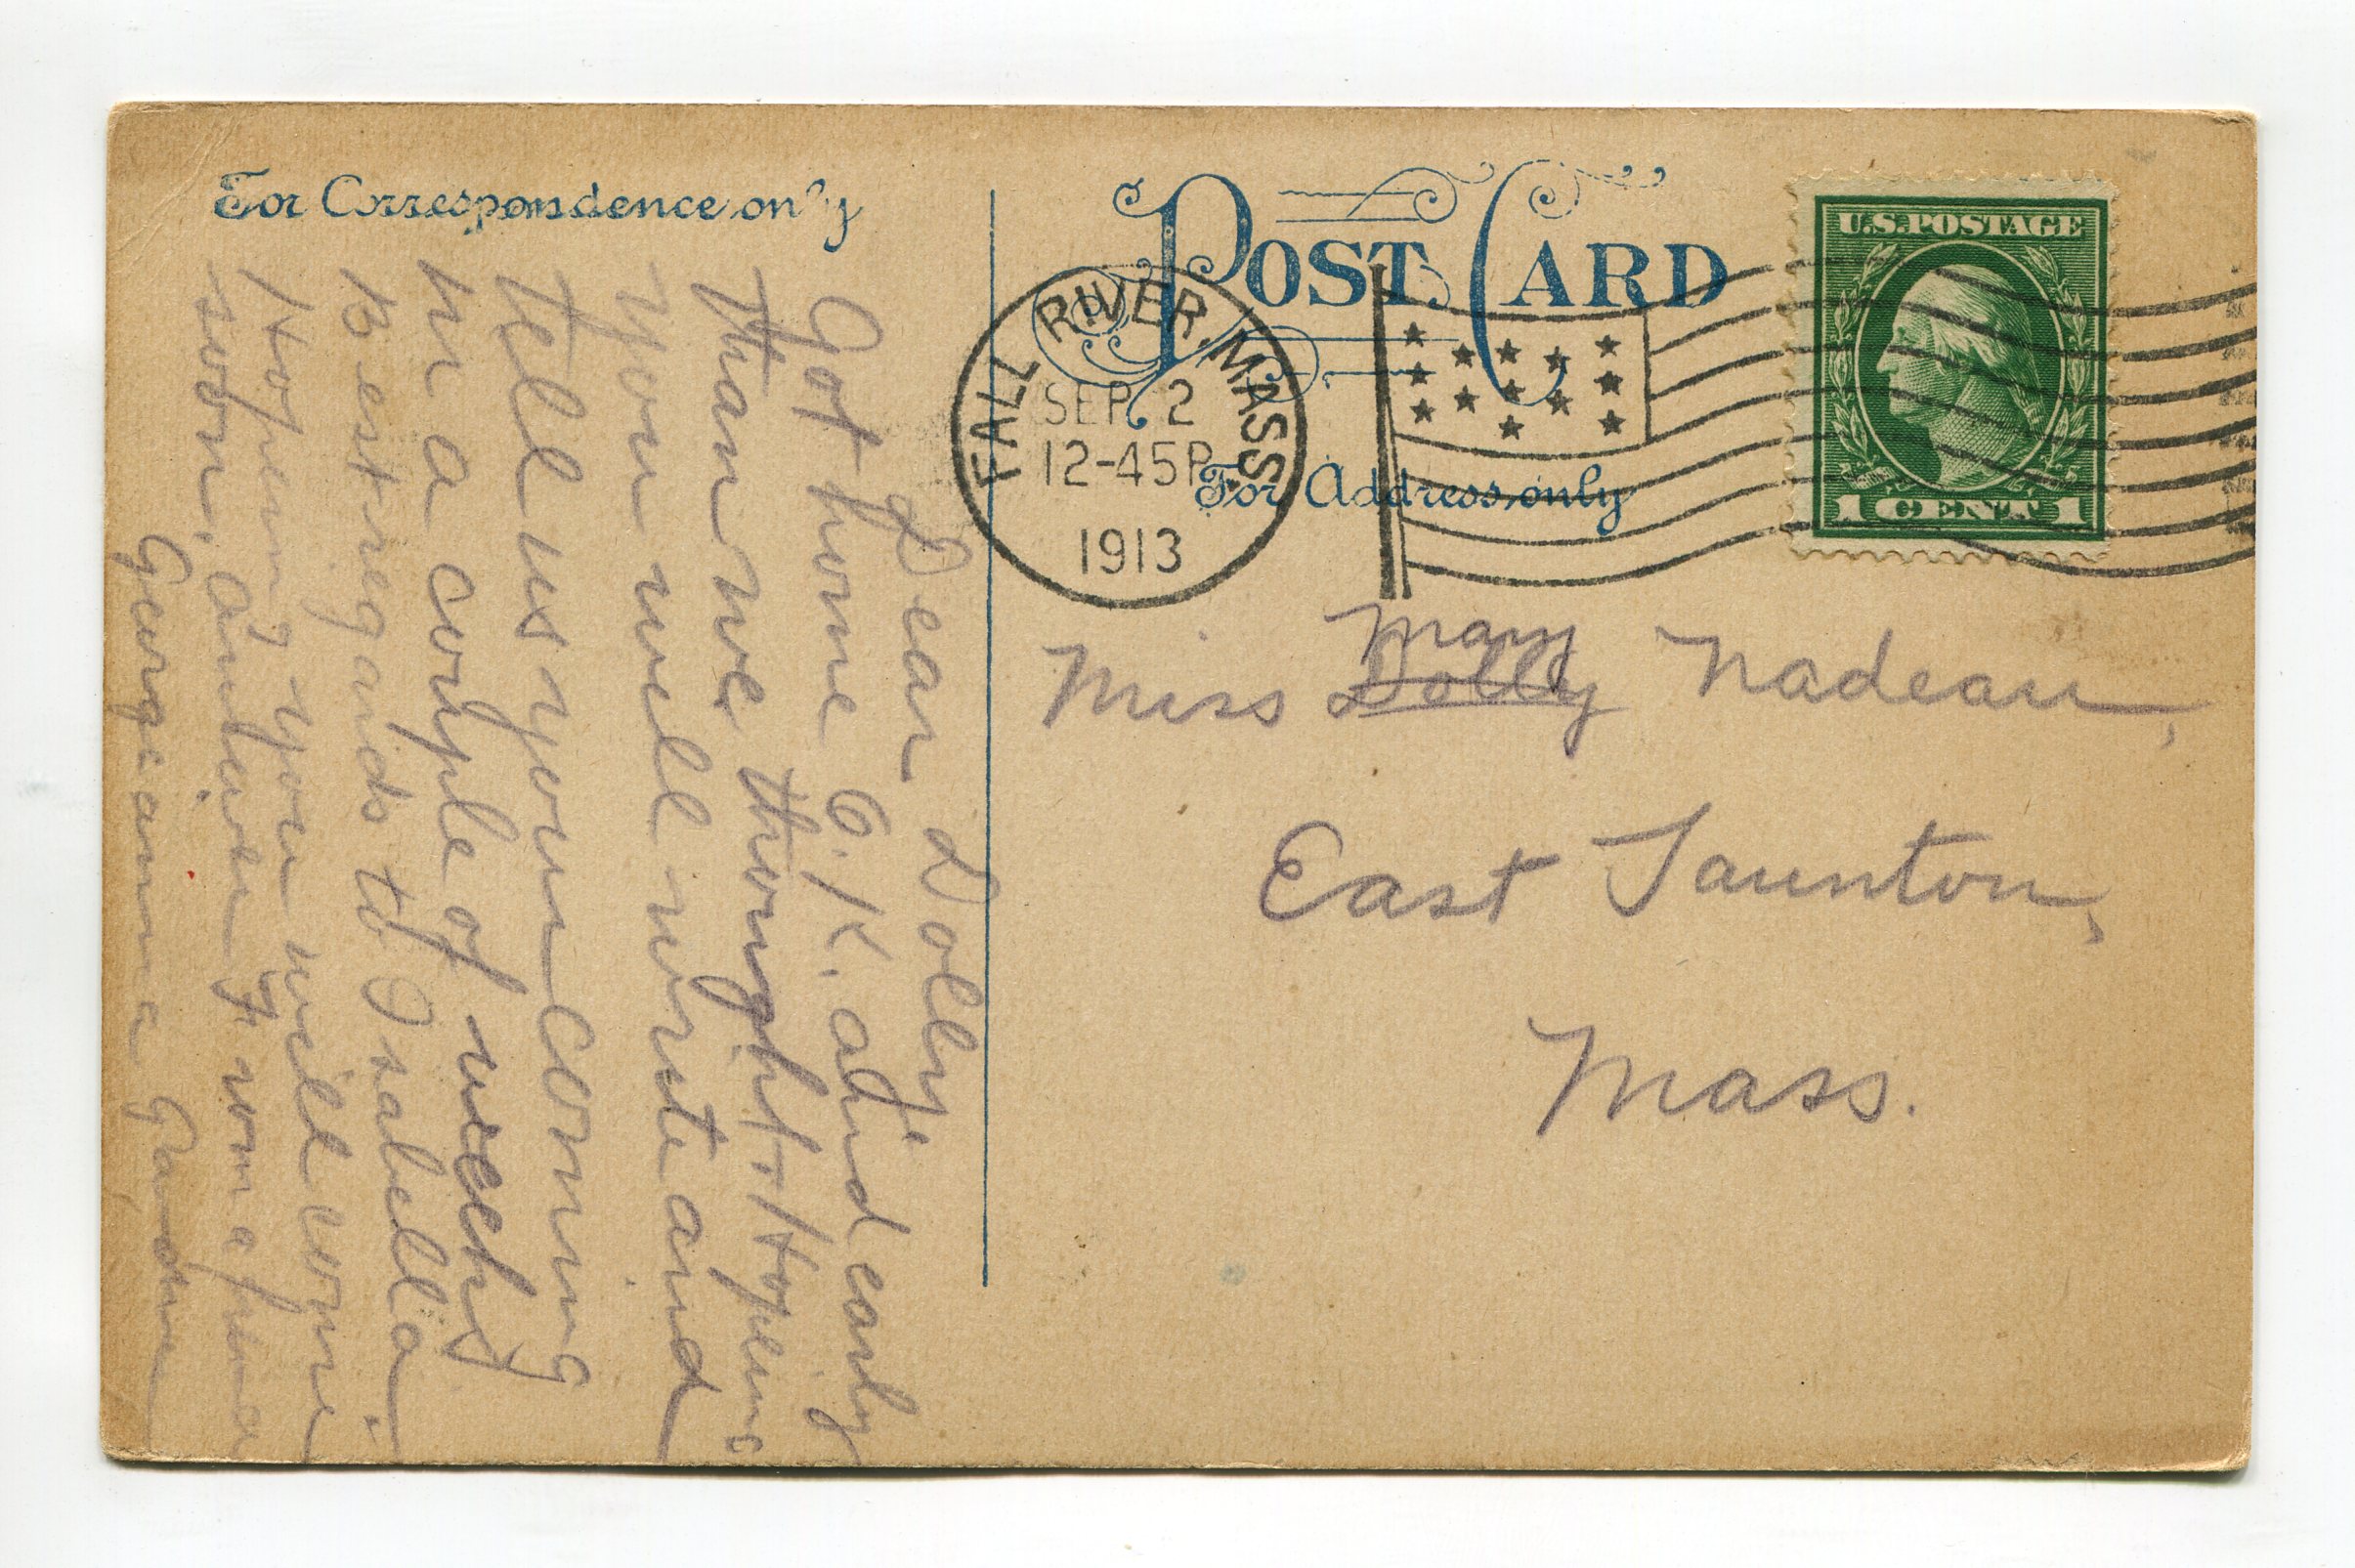 For Correspondence only
POST CARD
U.S. POSTAGE
1 CENT 1
FALL RIVER, MASS.
SEP 2
12-45P
1913
For Address only
Miss Dolly Mary Nadeau,
East Taunton,
Mass.
Dear Dolly:
Got home O.K. and early
than we thought. Hopeing
you will write and
tell us your coming
in a couple of weeks
Best regards to Isabella.
Hopeing you will come
soon, answer from a friend
Georgeanna Gardner